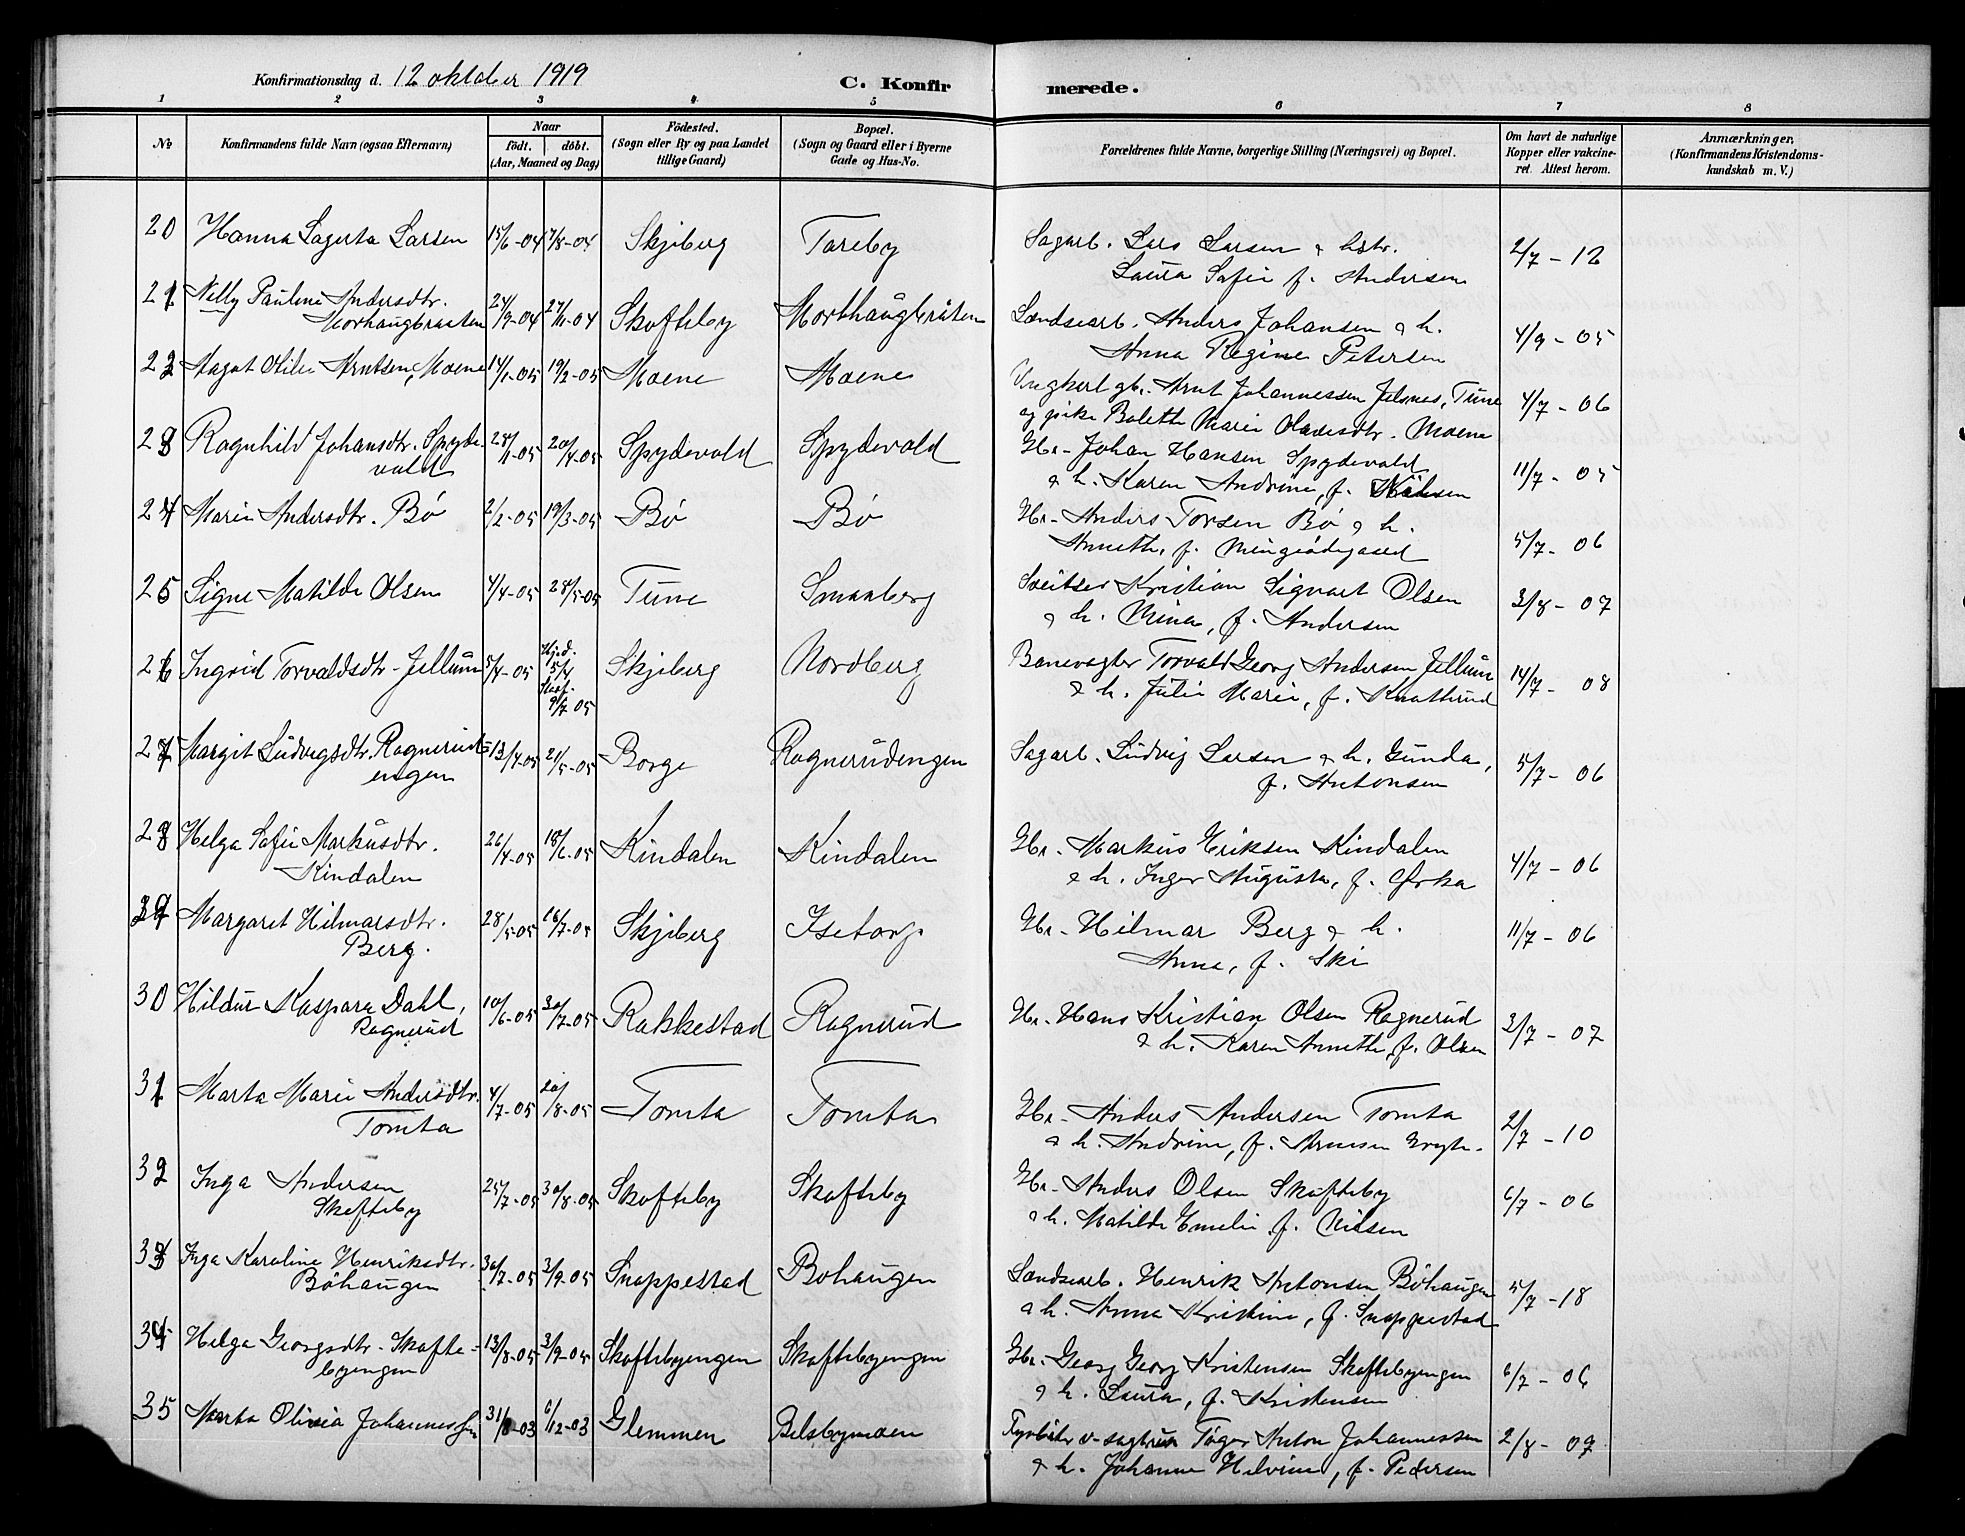 Konfirmationsdag d. 12 oktober 1919
C. Konfirmerede.
1 2 3 4 5 6 7 8
No
Konfirmandens fulde Navn (ogsaa Efternavn)
Naar
født. døbt.
(Aar, Maaned og Dag)
Fødested.
(Sogn eller By og paa Landet
tillige Gaard)
Bopæl.
(Sogn og Gaard eller i Byerne
Gade og Hus-No.
Forældrenes fulde Navne, borgerlige Stilling (Næringsvei) og Bopæl.
Om havt de naturlige
Kopper eller vakcine-
ret. Attest herom.
Anmærkninger,
(Konfirmandens Kristendoms-
kundskab m. V.)
20 Hanna Lagerta Larsen 15/6-04 7/8-04 Skjeberg Tareby Sagarb. Lars Larsen & hstr. 2/7-12
Laura Sofie f. Andersen
21 Nelly Pauline Andersdtr. 24/9-04 27/11-04 Skofteby Morthaugbråten Landsarb. Anders Johansen & h. 4/9-05
Morhaugbraaten
Anna Regine Petersen
22 Aagot Otilie Arntsen, Moene 14/1-05 19/2-05 Moene Moene Ungkarl gbr. Arnt Johannessen Jelsnes, Tune 4/7-06
og pike Bolette Marie Olavesdtr. Moene
23 Ragnhild Johansdtr. Spyde- 28/1-05 20/4-05 Spydevold Spydevold Gbr. Johan Hansen Spydevold 11/7-05
vold
& h. Karen Andrine, f.
24 Marie Andersdtr. Bø 2/2-05 19/3-05 Bø Bø Gbr. Anders Torsen Bø & h. 5/7-06
Annette, f. Mingeødegaard
25 Signe Matilde Olsen 4/4-05 28/5-05 Tune Smaaberg Sveitser Kristian Sigvart Olsen 3/8-07
& h. Mina, f. Andersen
26 Ingrid Torvaldsdtr. Jellum 5/4-05 Hjd. 5/4 Stadf. 9/7 05 Skjeberg Nordberg Banevagter Torvald Georg Andersen Jellum 14/7-08
& h. Julie Marie, f. Knatterud
27 Margit Ludvigsdtr. Ragneruds- 13/4-05 21/5-05 Borge Ragnerudengen Sagarb. Ludvig Larsen & h. Gunda, 5/7-06
engen
f. Antonsen
28 Helga Sofie Markusdtr. 26/4-05 18/6-05 Kindalen Kindalen Gbr. Markus Eriksen Kindalen 4/7-06
Kindalen
& h. Inger Augusta, f. Ørka
29 Margaret Hilmarsdtr. 28/5-05 16/7-05 Skjeberg Isetorp Gbr. Hilmar Berg & h. 11/7-06
Berg.
Anna, f. Ski
30 Hildur Kaspara Dahl, 10/6-05 30/7-05 Rakkestad Ragnerud Gbr. Hans Kristian Olsen Ragnerud 3/7-07
Ragnerud
& h. Karen Annette, f. Olsen
31 Marta Marie Andersdtr. 4/7-05 20/8-05 Tomta Tomta Gbr. Anders Andersen Tomta 2/7-10
Tomta
& h. Andrine, f. Arnesen
32 Inga Andersen 25/7-05 30/8-05 Skofteby Skofteby Gbr. Anders Olsen Skofteby 6/7-06
Skofteby
& h. Matilde Emelie f. Nilsen
33 Inga Karoline Henriksdtr. 30/7-05 3/9-05 Snoppestad Bøhaugen Landsarb. Henrik Antonsen Bøhaugen 5/7-18
Bøhaugen
& h. Anna Kristine, f. Snoppestad
34 Helga Georgsdtr. Skofte- 13/8-05 3/9-05 Skoftebyengen Skoftebyengen Gbr. Georg Georg Kristensen Skoftebyengen 6/7-06
byengen
& h. Laura, f. Kristensen
35 Marta Olivia Johannessen 31/8-03 6/12-03 Glemmen Belsbymoen Fyrbøter v. sagbruk Tøger Anton Johannessen 2/8-09
& h. Johanne Helvine, f. Pedersen